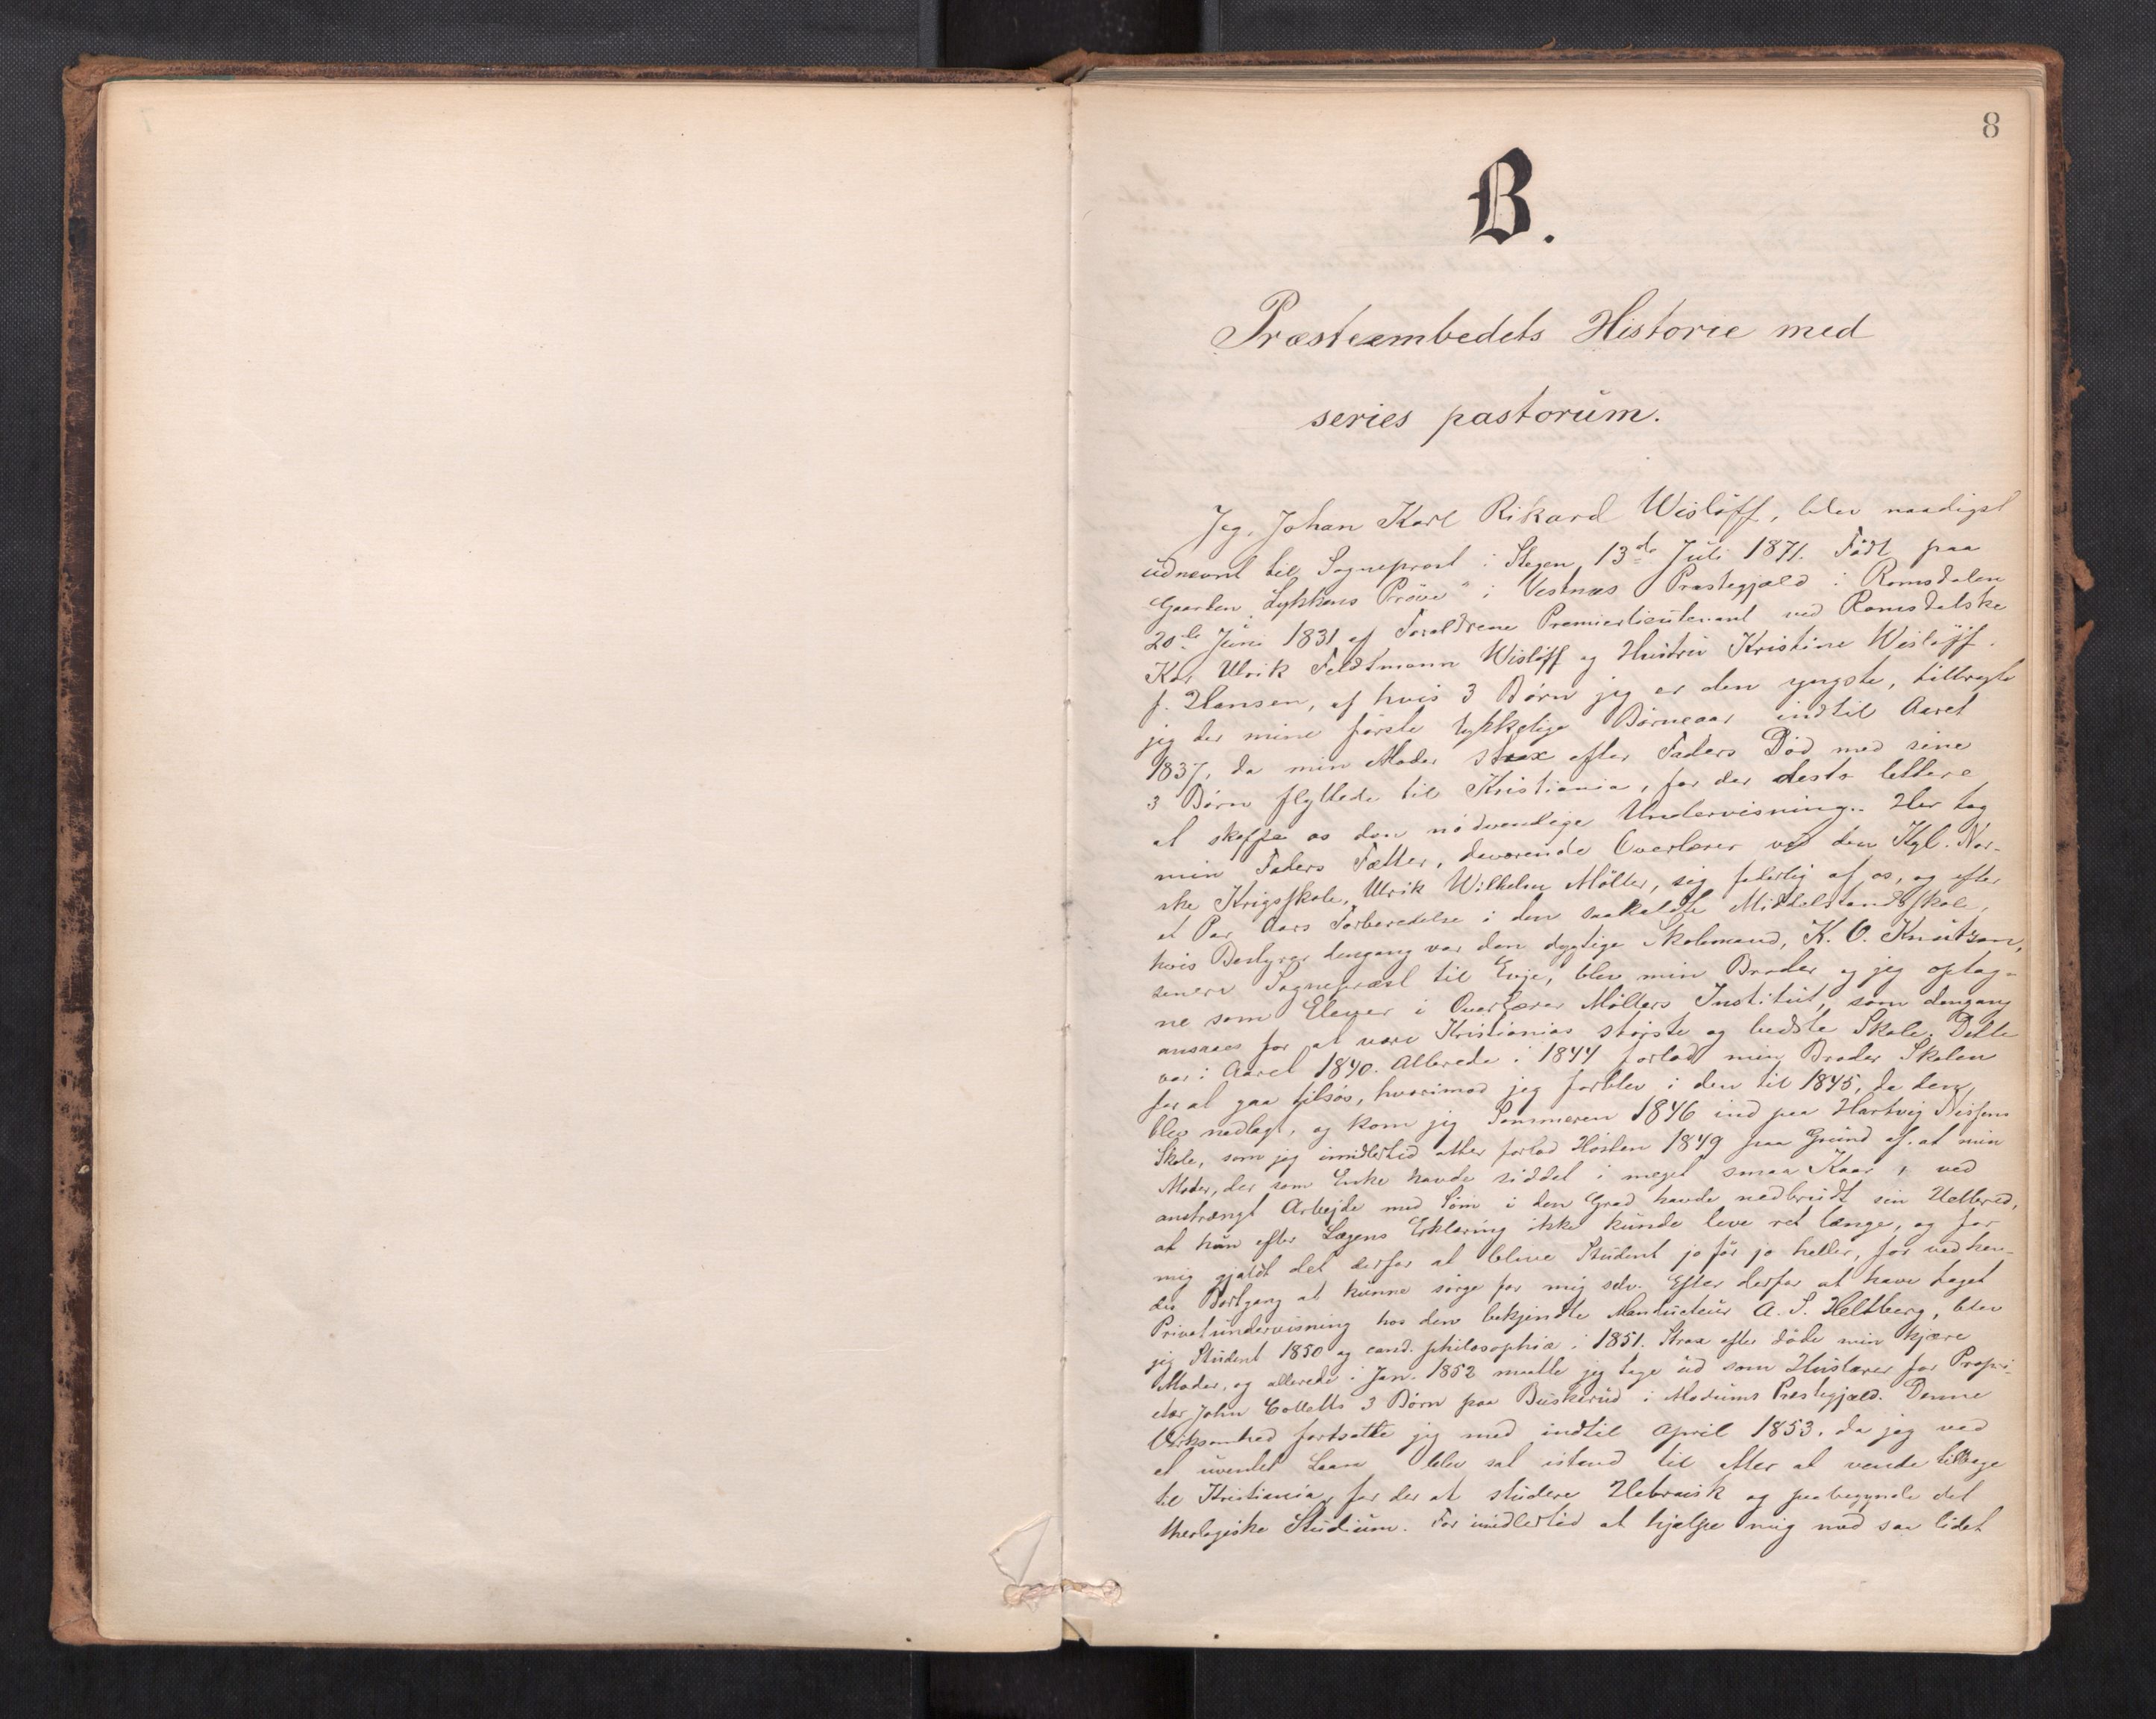 8
B.
Præsteembedets Historie med
series pastorum.
Jeg, Johan Karl Rikard Wisløff, blev naadigst
udnævnt til Sogneprest i Stegen 13de Juli 1871. Født paa
Gaarden "Lykkens Prøve" i Vestnæs Præstegjæld i Romsdalen
20de Juni 1831 af Forældrene Premierlieutenant ved Romsdalske
Kor, Ulrik Feldtmann Wisløff og Hustru Kristine Wisløff
f. Hansen, af hvis 3 Børn jeg er den yngste, tilbragte
jeg der mine første lykkelige Børneaar indtil Aaret
1837, da min Moder strax efter Faders Død med sine
3 Børn flyttede til Kristiania, for der desto lettere
at skaffe os den nødvendige Undervisning. Her tog
min Faders Fætter, daværende Overlærer ved den Kgl. Nor-
ske Krigsskole, Ulrik Wilhelm Møller, sig faderlig af os, og efter
et Par Aars Forberedelse i den saakaldte Middelstandsskole,
hvis Bestyrer dengang var den dygtige Skolemand, K. O. Knutzon,
senere Sognepræst til Evje, blev min Broder og jeg optag-
ne som Elever i Overlærer Møllers Institut, som dengang
ansaaes for at være Kristianias største og bedste Skole. Dette
var i Aaret 1840. Allerede i 1844 forlod min Broder Skolen
for at gaa tilsøs, hvorimod jeg forblev i den til 1845, da den
blev nedlagt, og kom jeg Sommeren 1846 ind paa Hartvig Nissens
Skole, som jeg imidlertid atter forlod Høsten 1849 paa Grund af, at min
Moder, der som Enke havde siddet i meget smaa Kaar, ved
anstrængt Arbejde med Søm i den Grad havde nedbrudt sin Helbred,
at hun efter Lægens Erklæring ikke kunde leve ret længe, og for
mig gjaldt det derfor at blive Student jo før jo heller, for ved hen-
des Bortgang at kunne sørge for mig selv. Efter derfor at have taget
Privatundervisning hos den bekjendte Manuducteur A. S. Heltberg, blev
jeg Student 1850 og cand. philosophiæ i 1851. Strax efter døde min kjære
Moder, og allerede i Jan. 1852 maatte jeg tage ud som Huslærer for Propri-
etær John Colletts 3 Børn paa Buskerud i Modums Prestegjæld. Denne
Virksomhed fortsatte jeg med indtil April 1853, da jeg ved
et uventet Laan blev sat istand til atter at vende tilbage
til Kristiania, for der at studere Hebraisk og paabegynde det
theologiske Studium. For imidlertid at hjælpe mig med saa lidet